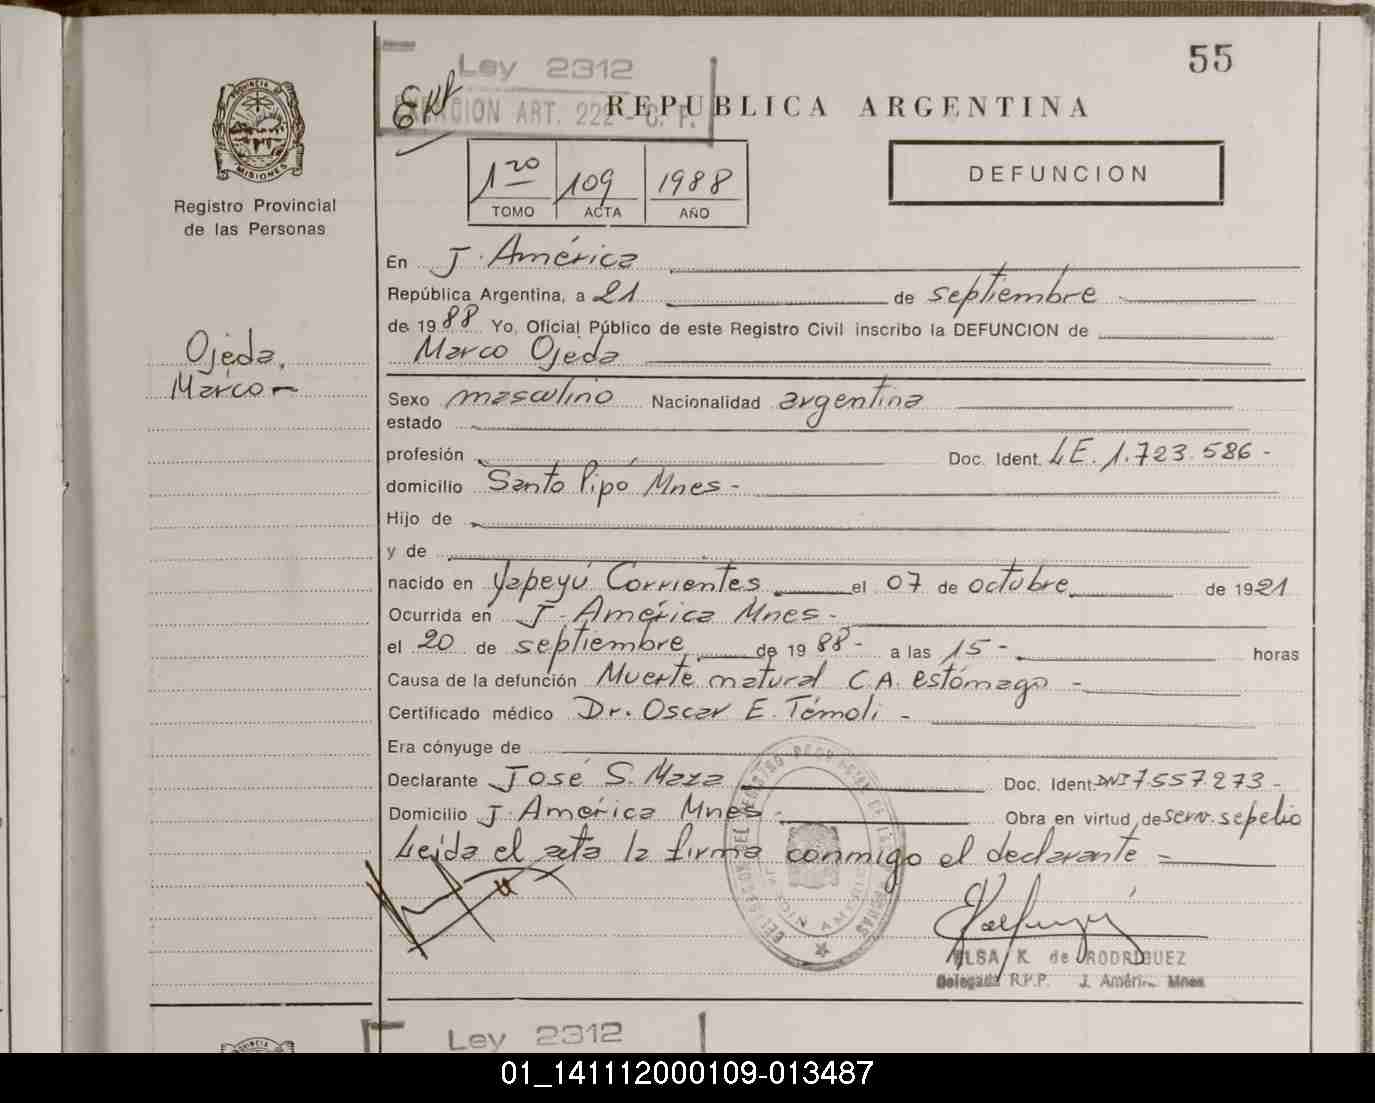 55
Ley 2312
EXENCION ART. 222 - C. F.
REPUBLICA ARGENTINA
PROVINCIA DE
MISIONES
Registro Provincial
de las Personas
1ro 109 1988
TOMO ACTA AÑO
DEFUNCION
En J. América
República Argentina, a 21 de septiembre
de 1988 Yo, Oficial Público de este Registro Civil inscribo la DEFUNCION de
Marco Ojeda
Ojeda,
Marco-
Sexo masculino Nacionalidad argentina
estado
profesión Doc. Ident. L.E. 1.723.586 -
domicilio Santo Pipó Mnes -
Hijo de
y de
nacido en Yapeyú Corrientes el 07 de octubre de 1921
Ocurrida en J. América Mnes -
el 20 de septiembre de 1988 - a las 15 - horas
Causa de la defunción Muerte natural C.A. estómago -
Certificado médico Dr. Oscar E. Témoli -
Era cónyuge de
Declarante José S. Maza Doc. Ident DNI 7557.273 -
Domicilio J. América Mnes - Obra en virtud de serv. sepelio
Leída el acta la firma conmigo el declarante =
ELSA K. de RODRIGUEZ
Delegada R.P.P. J. América Mnes
Ley 2312
01_141112000109-013487